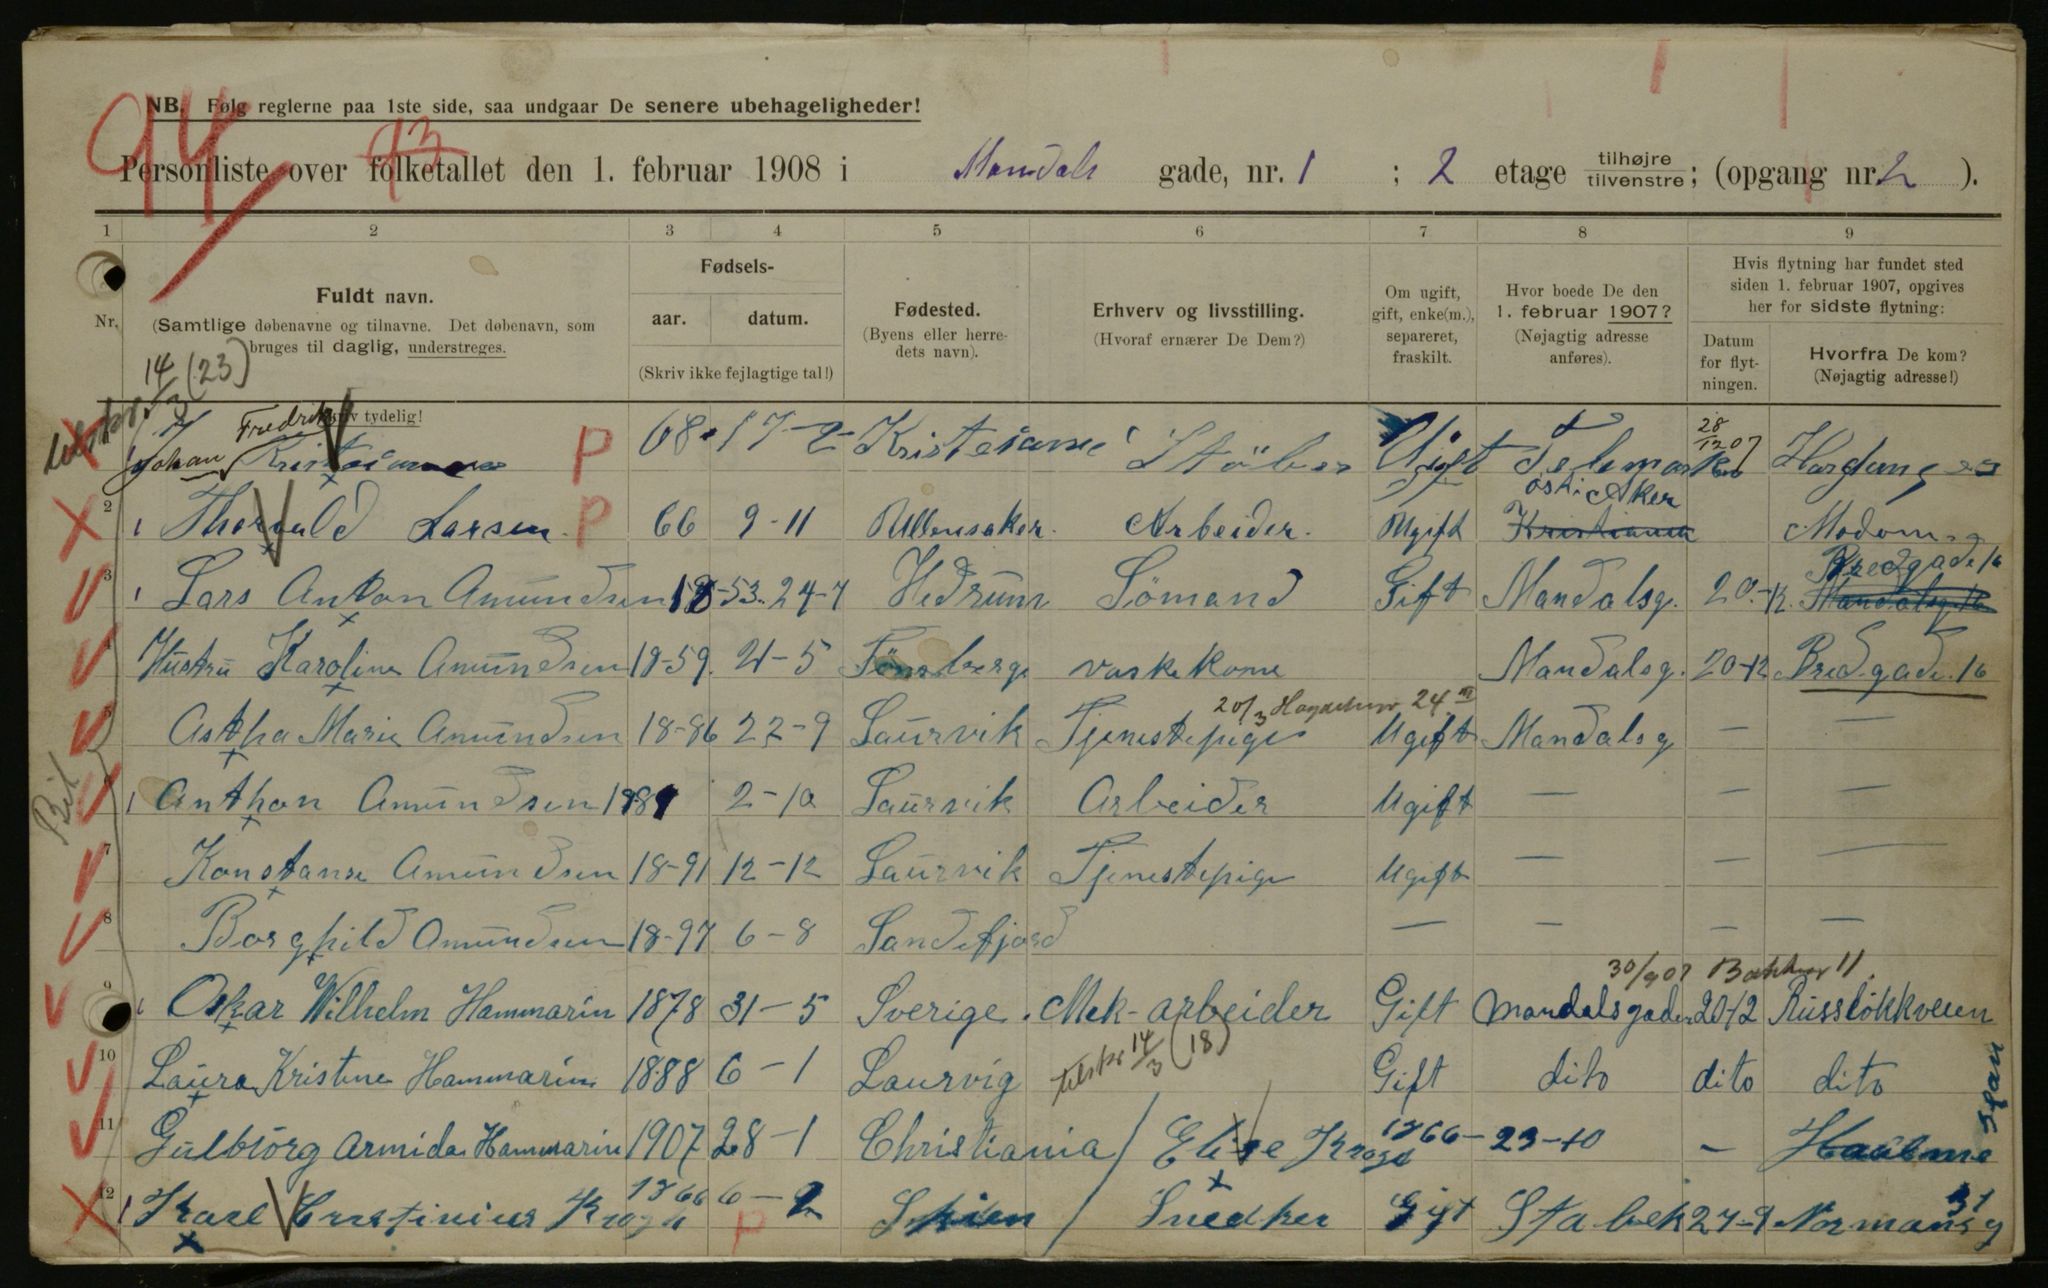 94
NB. Følg reglerne paa 1ste side, saa undgaar De senere ubehageligheder!
93
Personliste over folketallet den 1. februar 1908 i Mandals gade, nr. 1 ; 2 etage tilhøjre tilvenstre; (opgang nr. 2 ).
1 2 3 4 5 6 7 8 9
Nr.
Fuldt navn.
(Samtlige døbenavne og tilnavne. Det døbenavn, som bruges til daglig, understreges.
Skriv tydelig!
Fødsels-
aar. datum.
(Skriv ikke fejlagtige tal!)
Fødested.
(Byens eller herredets navn).
Erhverv og livsstilling.
(Hvoraf ernærer De Dem?)
Om ugift, gift, enke(m.), separeret, fraskilt.
Hvor boede De den 1. februar 1907?
(Nøjagtig adresse anføres).
Hvis flytning har fundet sted siden 1. februar 1907, opgives her for sidste flytning:
Datum for flytningen.
Hvorfra De kom?
(Nøjagtig adresse!)
14/3 (23)
Fredrik 28/12 07
Johan P 68 17-2 Ugift
østre Aker
2 1 Thorvald Larsen. P 66 9-11 Ullensaker. Arbeider. Ugift Kristiania
Bredgade 16
3 1 Lars Anton Amundsen 18-53. 24-7 Hedrum Sömand Gift Mandalsg. 20.-12. Mandalsg. 16
4 Hustru Karoline Amundsen 18-59. 21-5 Tönsberg vaskekone Mandalsg. 20-12 Bredgade. 16
20/3 24 III
5 Astha Marie Amundsen 18-86 22-9 Laurvik Tjenestepige Ugift Mandalsg — —
6 1 Anthon Amundsen 1889 2-10 Laurvik Arbeider Ugift — — —
7 Konstanse Amundsen 18-91 12-12 Laurvik Tjenestepige Ugift — — —
8 Borghild Amundsen 18-97 6-8 Sandefjord — — — —
30/9 07 11
9 1 Oskar Wilhelm Hammarin 1878 31-5 Sverige. Mek-arbeider Gift Mandalsgaden 20-12 Russlökkveien
tilskr 14/3 (18)
10 Laura Kristine Hammarin 1888 6-1 Laurvig Gift dito dito dito
11 Gulbiorg Armida Hammarin 1907 28-1 Christiania / Elise Krogh 1866-23-10 —
12 1 Krogh 1866 6-2 P Skien / Snedker Gift Stabek 27-9 Normansg 31